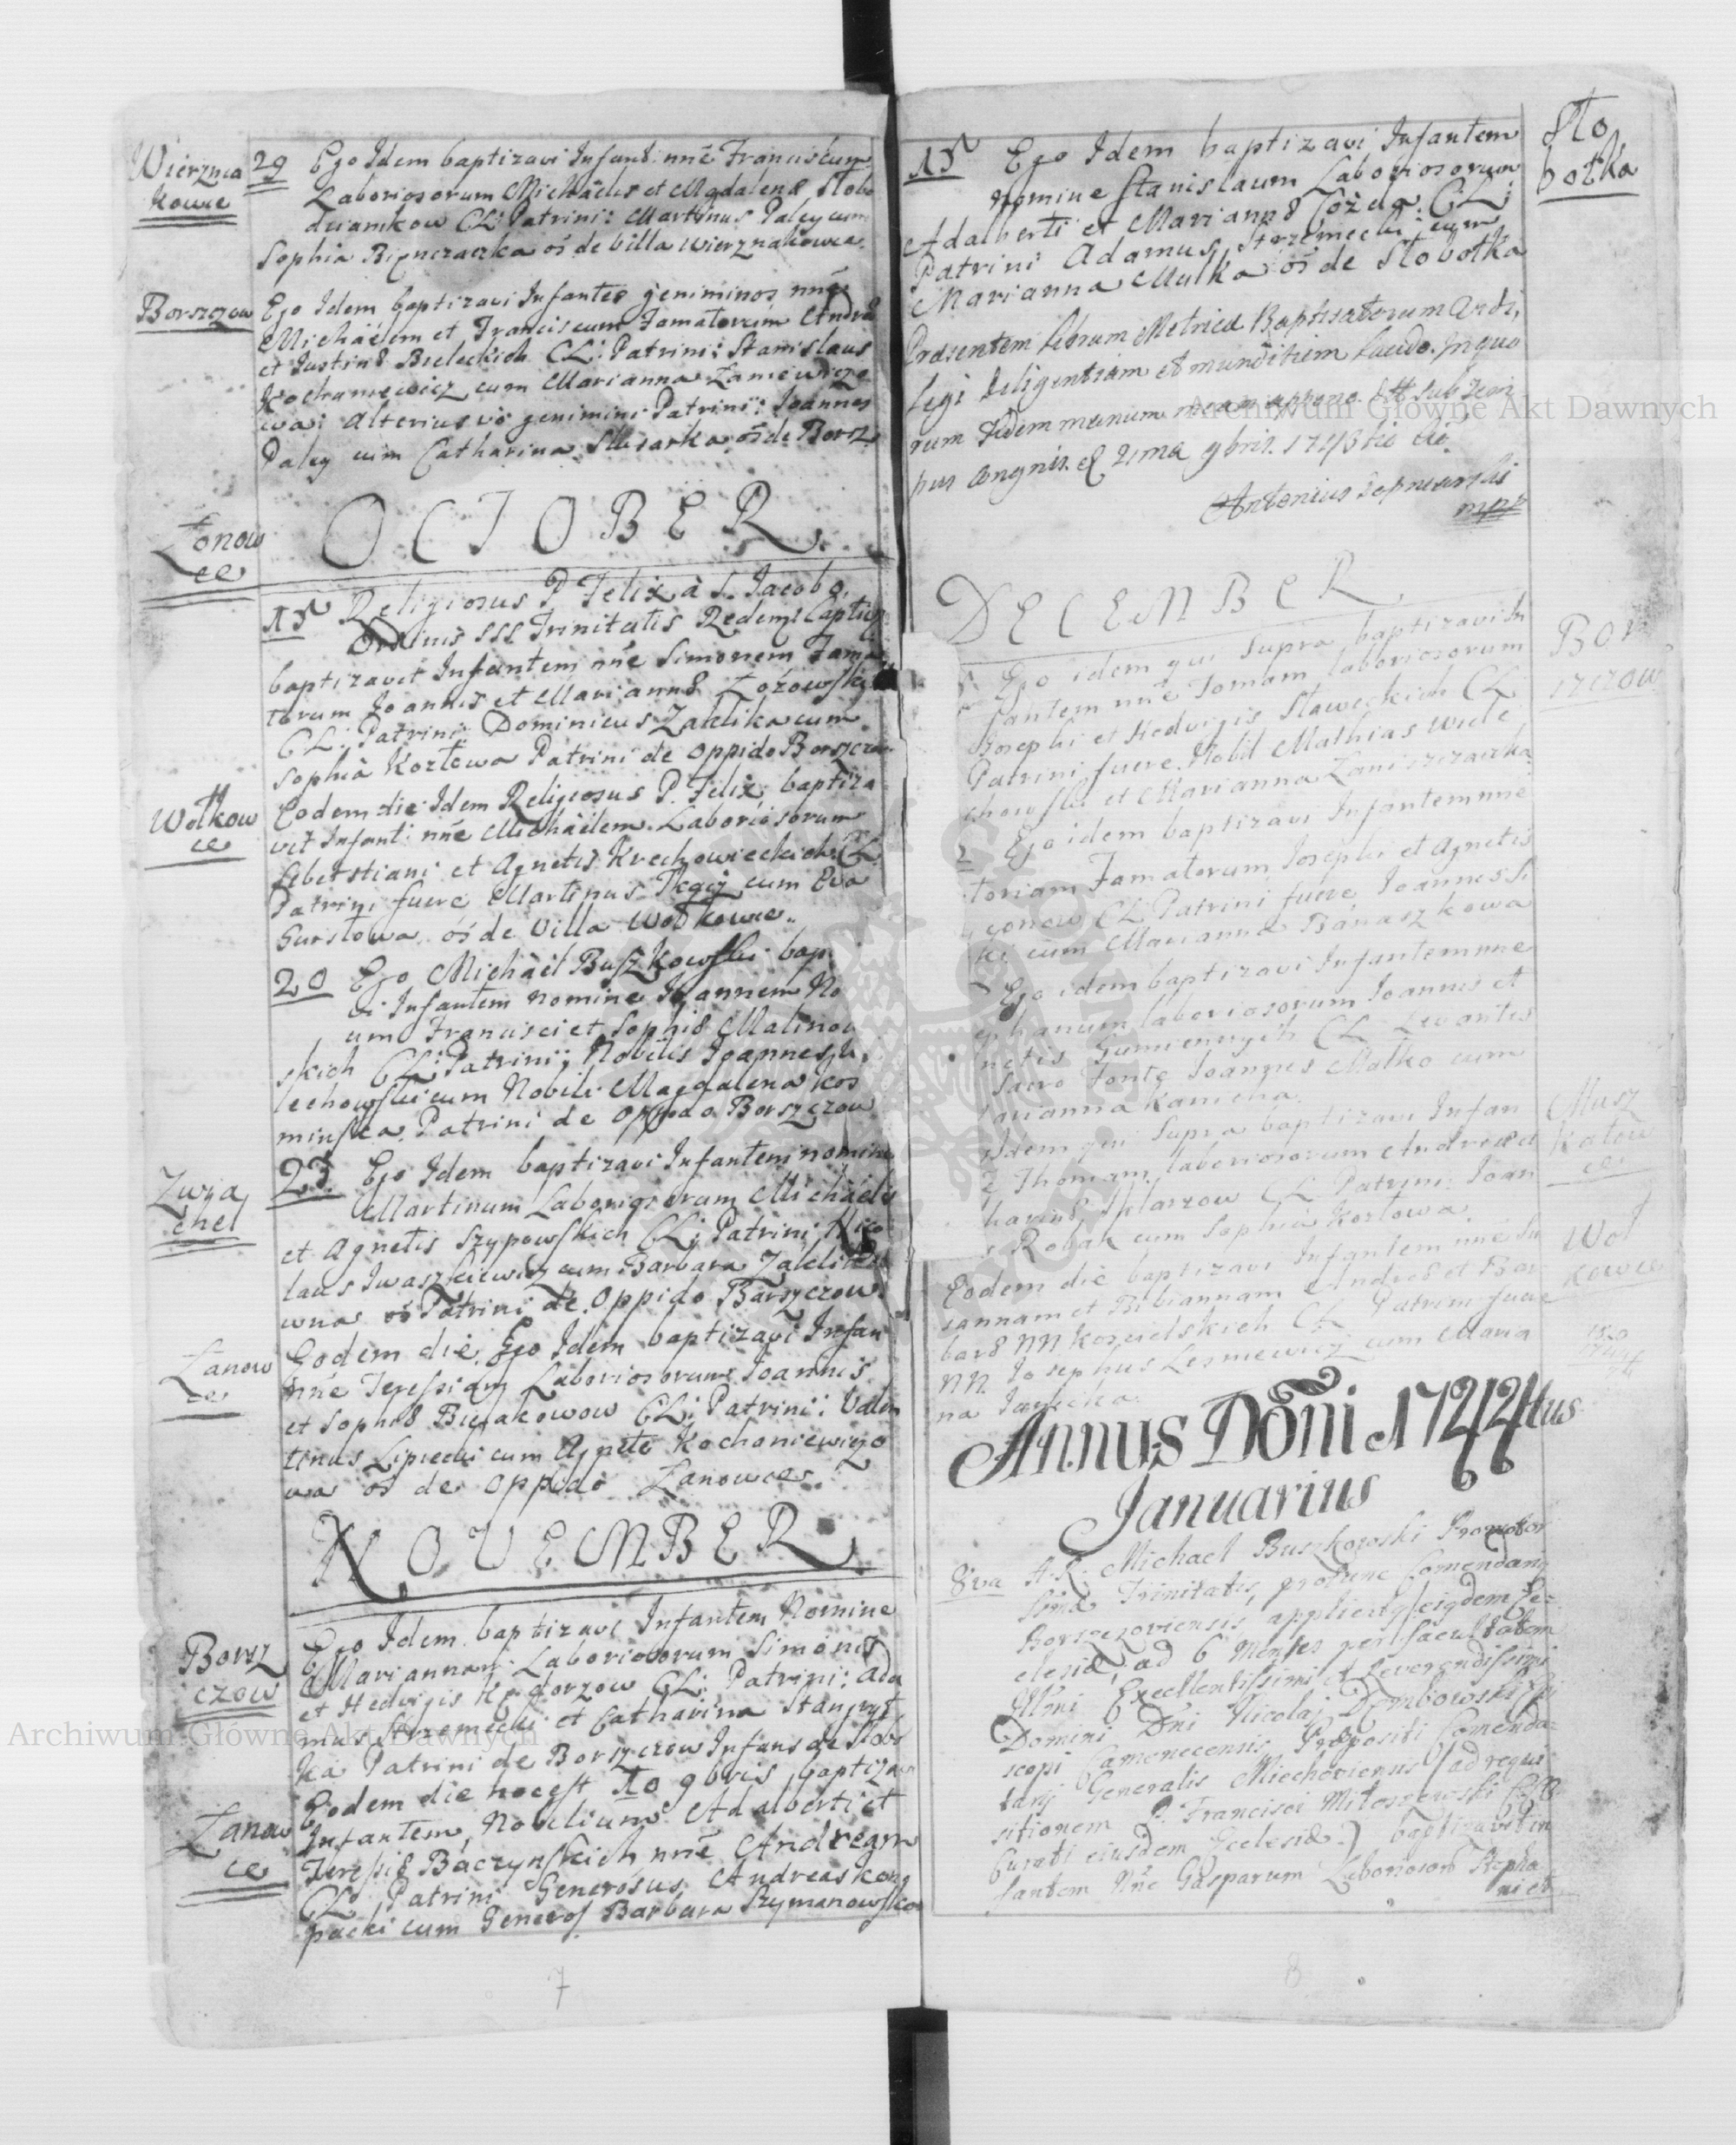 Wierznia
kowce
29 Ego Idem baptizavi Infant: nn̄e Franciscum
Laboriosorum Michaelis et Magdalenæ Słobo
dzianikow CL: Patrini: Martinus Paley cum
Sophia oś de villa Wierzniakowce.
Borszczow
Ego Idem baptizavi Infantes geniminos nn̄e
Michaelem et Franciscum Famatorum Andreæ
et Justinæ Bieleckich CL: Patrini: Stanislaus
Kochaniewicz cum Marianna Zaniewiczo
wa: Alterius vō genimini Patrini: Joannes
Paley cum Catharina Slusarka oś de Borsz
OCTOBER.
Łonow
ce
15 Religiosus P Felix à S. Jacobo,
Ordinis SSS Trinitatis Redemp: Captiv
baptizavit Infantem nn̄e Simonem Fama
torum Joannis et Mariannæ Łozowskich
CL: Patrini: Dominicus Zaklika cum
Sophia Kozłowa Patrini de oppido Borszczow
Wołkow
ce
Eodem die Idem Religiosus P. Felix baptiza
vit Infant: nn̄e Michaelem Laboriosorum
et Agnetis Krechowieckich CL
Patrini fuere Martinus cum Eva
oś de Villa Wołkowce.
20 Ego Michael Buszkowski bap
vi Infantem nomine Joannem No
um Francisci et Sophiæ Malinow
skich CL: Patrini: Nobilis Joannes
lechowski cum Nobili Magdalena Kos
minska. Patrini de Oppido Borszczow
Zwia
chel
23 Ego Idem baptizavi Infantem nomine
Martinum Laboriosorum Michaelis
et Agnetis Szypowskich CL: Patrini Nico
laus Iwaszkiewicz cum Barbara Zaklikow
wna oś Patrini de Oppido Barszczow
Łanow
ce
Eodem die Ego Idem baptizavi Infan
nn̄e Teressiam Laboriosorum Joannis
et Sophiæ CL: Patrini: Valen
tinus Lipiecki cum Agnete Kochaniewiczo
wa oś de Oppido Łanowce
NOVEMBER.
Borsz
czow
Ego Idem baptizavi Infantem Nomine
Mariannam Laboriosorum Simonis
et Hedvigis CL: Patrini: Ada
mus Strzemecki et Catharina
ka Patrini de Borszczow Infans de Słob
Łanow
ce
Eodem die hoc est 10 9bris baptizavi
Infantem, Nobilium Adalberti et
Teressiæ Baczynskich nn̄e Andream
CL: Patrini Generosus Andreas Kono
packi cum Generos Barbara Szymanowska
7
Sło
botka
15 Ego Idem baptizavi Infantem
nomine Stanislaum Laboriosorum
Adalberti et Mariannæ CL:
Patrini Adamus Strzemecki cum
Marianna Mulka oś de Słobotka
Præsentem librum Metricæ Baptisatorum
legi diligentiam et munditiem laudo. In quo
rum fidem manum meam appono
9bris. 1743tio
Antonius
mpp
DECEMBER.
Bor
szczow
Ego idem qui supra baptizavi In
fantem nn̄e Tomam laboriosorum
Josephi et Hedvigis Sławeckich CL
Patrini fuere Nobil Mathias Wiele
chowski et Marianna Zaniszczaczka
2 Ego idem baptizavi Infantem nn̄e
toriam Famatorum Josephi et Agnetis
CL Patrini fuere Joannes
ki cum Marianna Banaszkowa
Ego idem baptizavi Infantem nn̄e
ephanum laboriosorum Joannis et
netis CL Levantes
Sacro Fonte Joannes Matko cum
arianna Kanicha
Musz
katow
ce
Idem qui supra baptizavi Infan
e Thomam laboriosorum Andreæ et
harinæ CL Patrini Joan
s Robak cum Sophia Kozłowa.
Woł
kowce
Eodem die baptizavi Infantem nn̄e Su
sannam et Bibiannam Andreæ et Bar
baræ NN Koscielskich CL Patrini fuere
NN Josephus Lesniewicz cum Maria
na Janicka
Annus Dōni 1744tus
Januarius
8va A. R. Michael Buszkowski Promotor
SSmæ Trinitatis, protunc Comendarij
Borszczoviensis eiusdem Ec=
clesiæ, ad 6 Menses per facultatem
Illmi Excellentissimi et Reverendissimi
Domini Dni Nicolaj Dembowski Epi
scopi Camenecensis Præpositi Comenda=
tarij Generalis Miechoviensis (ad requi
sitionem P. Francisci Miłoszewski
Curati eiusdem Ecclesiæ) baptizavit in
fantem Nn̄e Gasparum Laborioso Stepha
ni et
8
Archiwum Główne Akt Dawnych
Archiwum Główne Akt Dawnych